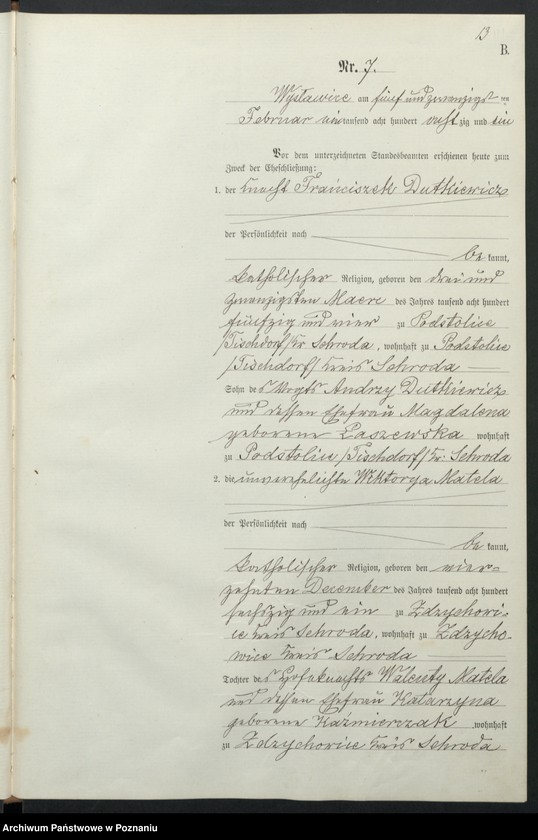 13
B.
Nr. 7.
Wysławice am fünf und zwanzigsten
Februar ein tausend acht hundert achtzig und ein
Vor dem unterzeichneten Standesbeamten erschienen heute zum
Zweck der Eheschließung:
1. der Knecht Franciszek Dutkiewicz
der Persönlichkeit nach
be kannt,
katholischer Religion, geboren den drei und
zwanzigsten Maerz des Jahres tausend acht hundert
fünfzig und vier zu Podstolice
/Tischdorf/ Kr Schroda, wohnhaft zu Podstolice
/Tischdorf/ Kreis Schroda
Sohn des Vogts Andrzy Dutkiewicz
und dessen Ehefrau Magdalena
geborenen Laszewska wohnhaft
zu Podstolice /Tischdorf/ Kr: Schroda
2. die unverehelichte Wiktorya Matela
der Persönlichkeit nach
be kannt,
katholischer Religion, geboren den vier-
zehnten December des Jahres tausend acht hundert
sechszig und ein zu Zdzychowi-
ce Kreis Schroda, wohnhaft zu Zdzycho-
wice Kreis Schroda
Tochter des Hofeknechts Walenty Matela
und dessen Ehefrau Katarzyna
geborene Kaźmierczak wohnhaft
zu Zdzychowice Kreis Schroda
Archiwum Państwowe w Poznaniu